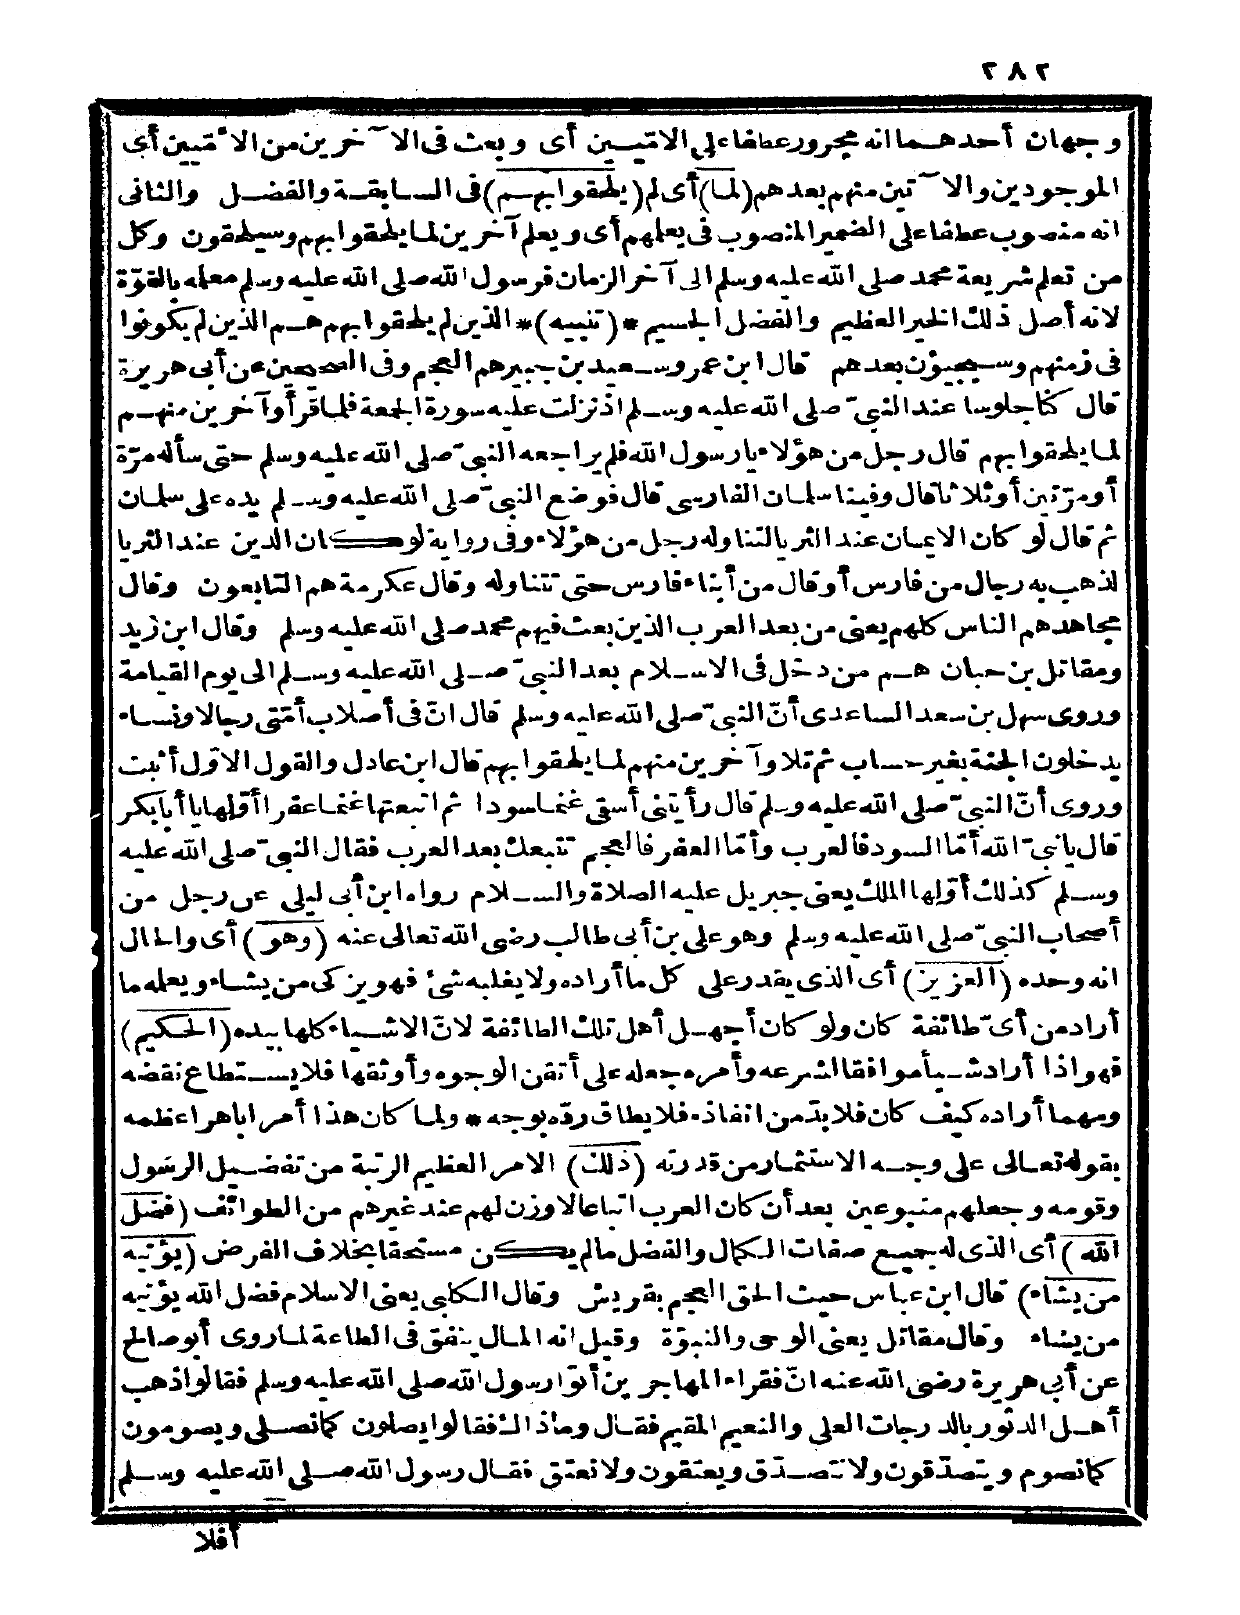 ٢٨٢
وجهان أحدهما انه مجرور عطفا على الاميين أى وبعث فى الآخرين من الأمّيين أى
الموجودين والآتين منهم بعدهم (لما) أى لم (يلحقوا بهم) فى السابقة والفضل والثانى
انه منصوب عطفا على الضمير المنصوب فى يعلمهم أى ويعلم آخرين لما يلحقوا بهم وسيلحقون وكل
من تعلم شريعة محمد صلى الله عليه وسلم الى آخر الزمان فرسول الله صلى الله عليه وسلم معلمه بالقوّة
لانه أصل ذلك الخير العظيم والفضل الجسيم * (تنبيه) * الذين لم يلحقوا بهم هم الذين لم يكونوا
فى زمنهم وسيجيؤن بعدهم قال ابن عمر وسعيد بن جبير هم العجم وفى الصحيحين عن أبى هريرة
قال كنا جلوسا عند النبىّ صلى الله عليه وسلم اذ نزلت عليه سورة الجمعة فلما قرأ وآخرين منهم
لما يلحقوا بهم قال رجل من هؤلاء يا رسول الله فلم يراجعه النبىّ صلى الله عليه وسلم حتى سأله مرّة
أو مرّتين أو ثلاثا قال وفينا سلمان الفارسى قال فوضع النبىّ صلى الله عليه وسلم يده على سلمان
ثم قال لو كان الايمان عند الثريا لتناوله رجل من هؤلاء وفى رواية لو كان الدين عند الثريا
لذهب به رجال من فارس أو قال من أبناء فارس حتى تتناوله وقال عكرمة هم التابعون وقال
مجاهد هم الناس كلهم يعنى من بعد العرب الذين بعث فيهم محمد صلى الله عليه وسلم وقال ابن زيد
ومقاتل بن حبان هم من دخل فى الاسلام بعد النبىّ صلى الله عليه وسلم الى يوم القيامة
وروى سهل بن سعد الساعدى أنّ النبىّ صلى الله عليه وسلم قال انّ فى أصلاب أمّتى رجالا ونساء
يدخلون الجنة بغير حساب ثم تلا وآخرين منهم لما يلحقوا بهم قال ابن عادل والقول الاوّل أثبت
وروى أنّ النبىّ صلى الله عليه وسلم قال رأيتنى أسقى غنما سودا ثم اتبعتها غنما عفرا أوّلها يا أبا بكر
قال يا نبىّ الله أمّا السود فالعرب وأمّا العفر فالعجم تتبعك بعد العرب فقال النبىّ صلى الله عليه
وسلم كذلك أوّلها الملك يعنى جبريل عليه الصلاة والسلام رواه ابن أبى ليلى عن رجل من
أصحاب النبىّ صلى الله عليه وسلم وهو على بن أبى طالب رضى الله تعالى عنه (وهو) أى والحال
انه وحده (العزيز) أى الذى يقدر على كل ما أراده ولا يغلبه شئ فهو يزكى من يشاء ويعلمه ما
أراد من أىّ طائفة كان ولو كان أجهل أهل تلك الطائفة لانّ الاشياء كلها بيده (الحكيم)
فهو اذا أراد شيأ موافقا لشرعه وأمره جعله على أتقن الوجوه وأوثقها فلا يستطاع نقضه
ومهما أراده كيف كان فلا بدّ من انفاذه فلا يطاق ردّه بوجه * ولما كان هذا أمرا باهرا عظمه
بقوله تعالى على وجه الاستثمار من قدرته (ذلك) الامر العظيم الرتبة من تفضيل الرسول
وقومه وجعلهم متبوعين بعد أن كان العرب اتباعا لا وزن لهم عند غيرهم من الطوائف (فضل
الله) أى الذى له جميع صفات الكمال والفضل ما لم يكن مستحقا بخلاف الفرض (يؤتيه
من يشاء) قال ابن عباس حيث الحق العجم بقريش وقال الكلبى يعنى الاسلام فضل الله يؤتيه
من يشاء وقال مقاتل يعنى الوحى والنبوّة وقيل انه المال ينفق فى الطاعة لما روى أبو صالح
عن أبى هريرة رضى الله عنه انّ فقراء المهاجرين أتوا رسول الله صلى الله عليه وسلم فقالوا ذهب
أهل الدثور بالدرجات العلى والنعيم المقيم فقال وما ذاك فقالوا يصلون كما نصلى ويصومون
كما نصوم ويتصدّقون ولا نتصدّق ويعتقون ولا نعتق فقال رسول الله صلى الله عليه وسلم
أفلا